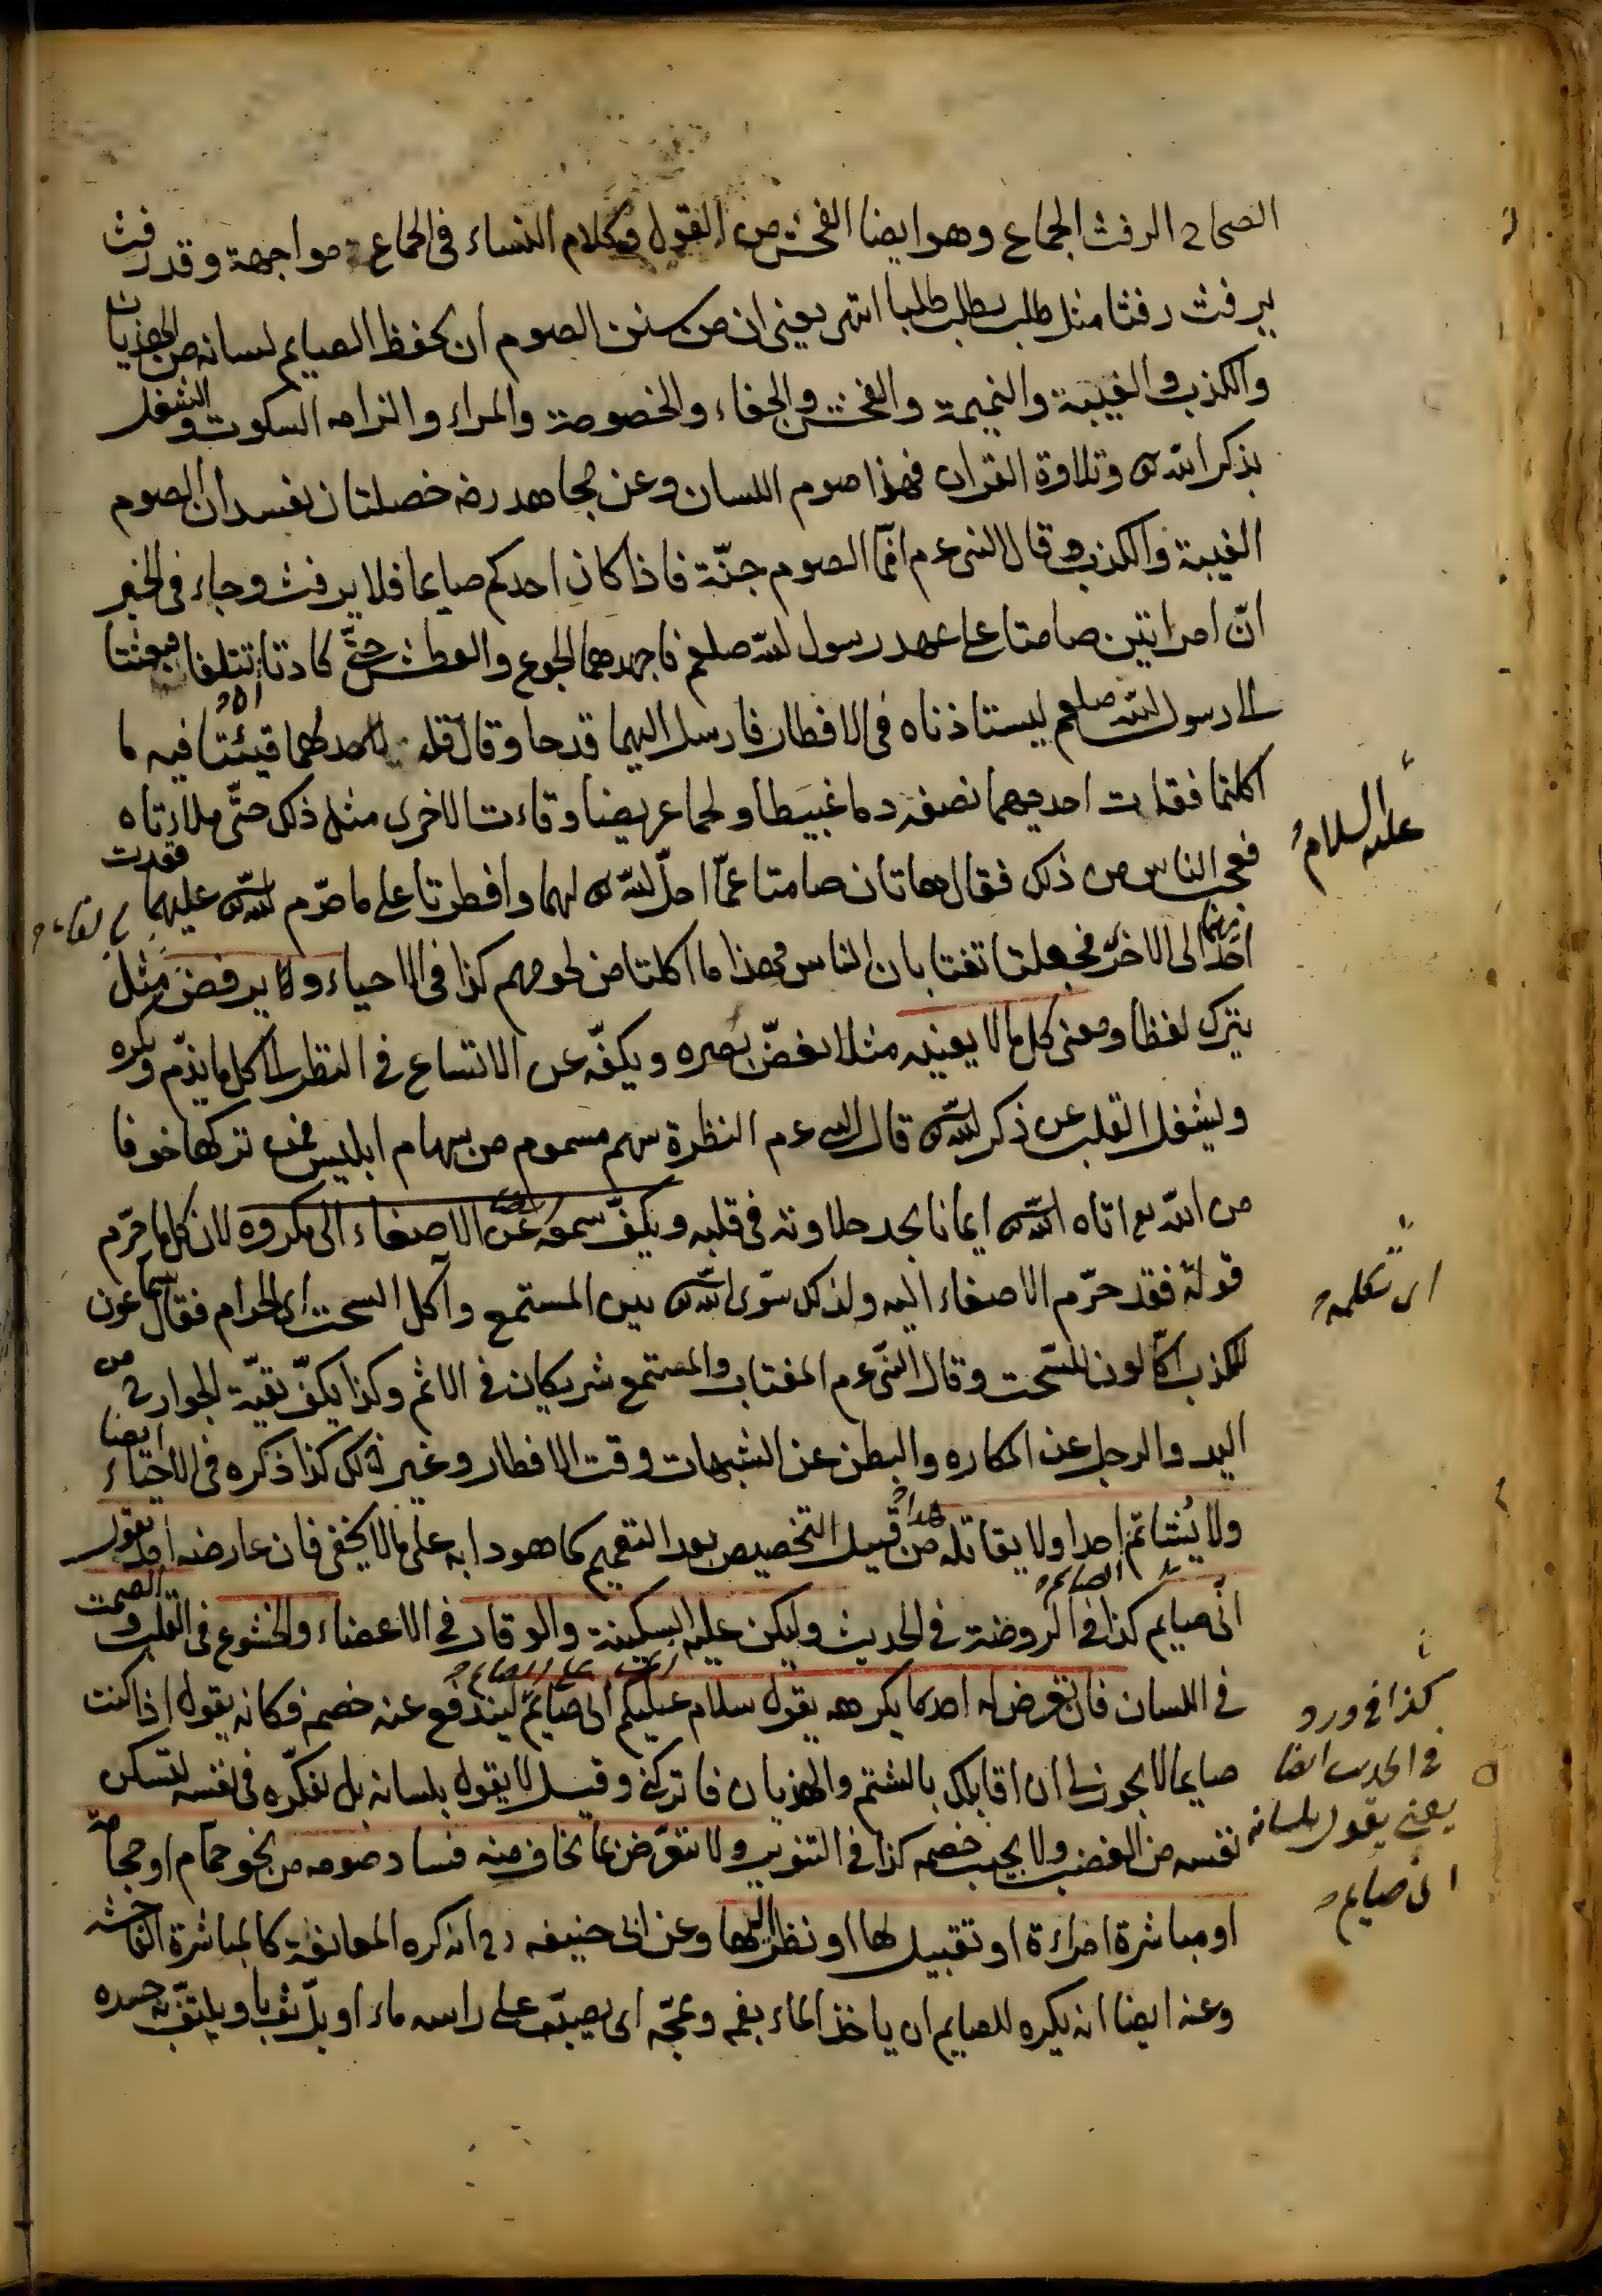 الصحاح الرفث الجماع وهو ايضا الفحش من القول وكلام النساء في الجماع مواجهة وقد رفث
يرفث رفثا مثل طلب يطلب طلبا انتهى يعنى ان من سنن الصوم ان يحفظ الصايم لسانه من الهذيان
والكذب والغيبة والنميمة والفحش والجفاء والخصومة والمراء والزامه السكوت والشغل
بذكر الله تع وتلاوة القران فهذا صوم اللسان وعن مجاهد رضه خصلتان تفسدان الصوم
الغيبة والكذب وقال النبى ع م انّما الصوم جنّة فاذا كان احدكم صايما فلا يرفث وجاء في الخبر
انّ امراتين صامتا على عهد رسول الله صلعم فاجهدهما الجوع والعطش حتّى كادتا تتلفا فبعثتا
الى رسول الله صلعم ليستاذناه في الافطار فارسل اليهما قدحا وقال قل لهما قيئتا فيه ما
اكلتما فقاءت احديهما نصفه دما غبيطا ولحما عريضا وقاءت الاخرى مثل ذلك حتّى ملاءتاه
فعجب الناس من ذلك فقال هاتان صامتا عمّا احلّ الله تع لهما وافطرتا على ما حرّم الله تع عليهما قعدت
احديهما الى الاخرى فجعلتا تغتابان الناس فهذا ما اكلتا من لحومهم كذا في الاحياء ولا يرفض مثل
يترك لفظا ومعنى كل ما لا يعنيه مثلا يغضّ بصره ويكفّه عن الاتساع في النظر الى كل ما يذمّ ويكره
ويشغل القلب عن ذكر الله تع قال النبى ع م النظرة سهم مسموم من سهام ابليس فمن تركها خوفا
من الله تع اتاه الله تع ايمانا يجد حلاوته في قلبه ويكفّ سمعه عن الاصغاء الى مكروه لان كل ما حرّم
قوله فقد حرّم الاصغاء اليه ولذلك سوّى الله تع بين المستمع وآكل السحت اى الحرام فقال سمّاعون
للكذب اكّالون للسّحت وقال النبى ع م المغتاب والمستمع شريكان في الاثم وكذا يكفّ بقيّة الجوارح من
اليد والرجل عن المكاره والبطن عن الشبهات وقت الافطار وغير ذلك كذا ذكره في الاحياء ايضا
ولا يُشاتم احدا ولا يقاتله هذا من قبيل التخصيص بعد التعميم كما هو دابه على ما لا يخفى فان عارضه احد يقول
انّى صايم كذا في الروضة في الحديث وليكن عليه السكينة والوقار في الاعضاء والخشوع في القلب والصمت
في اللسان فان تعرض له احد بما يكرهه يقول سلام عليكم انى صايم ليندفع عنه خصمه فكانه يقول اذا كنت
صايما لا يجوز لى ان اقابلك بالشتم والهذيان فاتركنى وقيل لا يقول بلسانه بل يفكّره في نفسه لتسكن
نفسه من الغضب ولا يجيب خصمه كذا في التنوير ولا يتعرّض بما يخاف منه فساد صومه من نحو حمّام او حجامة
او مباشرة امراءة او تقبيل لها او نظر اليها وعن ابى حنيفه رح انه كره المعانقة كالمباشرة الفاحشة
وعنه ايضا انه يكره للصايم ان ياخذ الماء بفمه ويمجّه اى يصبّه على راسه ماء او يبلّ ثوبا ويلتفّ به جسده
عليه السلام
اى تكلمه
كذا في ورد
في الحديث ايضا
يعنى يقول بلسانه
انى صايم